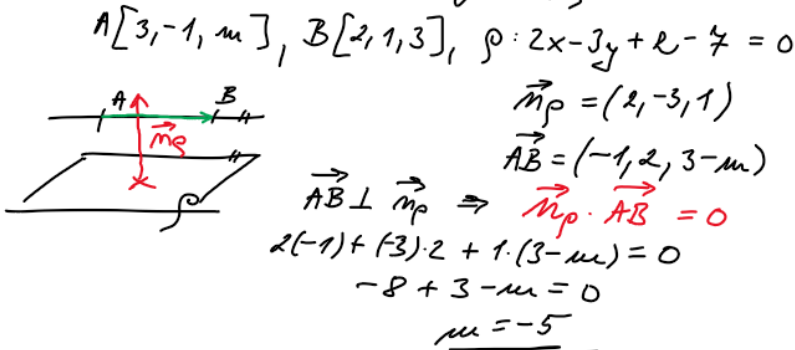 A[3,-1, m], B[2,1,3], ρ: 2x-3y+z-7 = 0
A B
n⃗ρ
ρ
n⃗ρ = (2,-3,1)
A⃗B⃗ = (-1,2,3-m)
A⃗B⃗ ⊥ n⃗ρ ⇒ n⃗ρ · A⃗B⃗ = 0
2(-1)+(-3)·2 + 1·(3-m) = 0
-8 + 3 - m = 0
m = -5